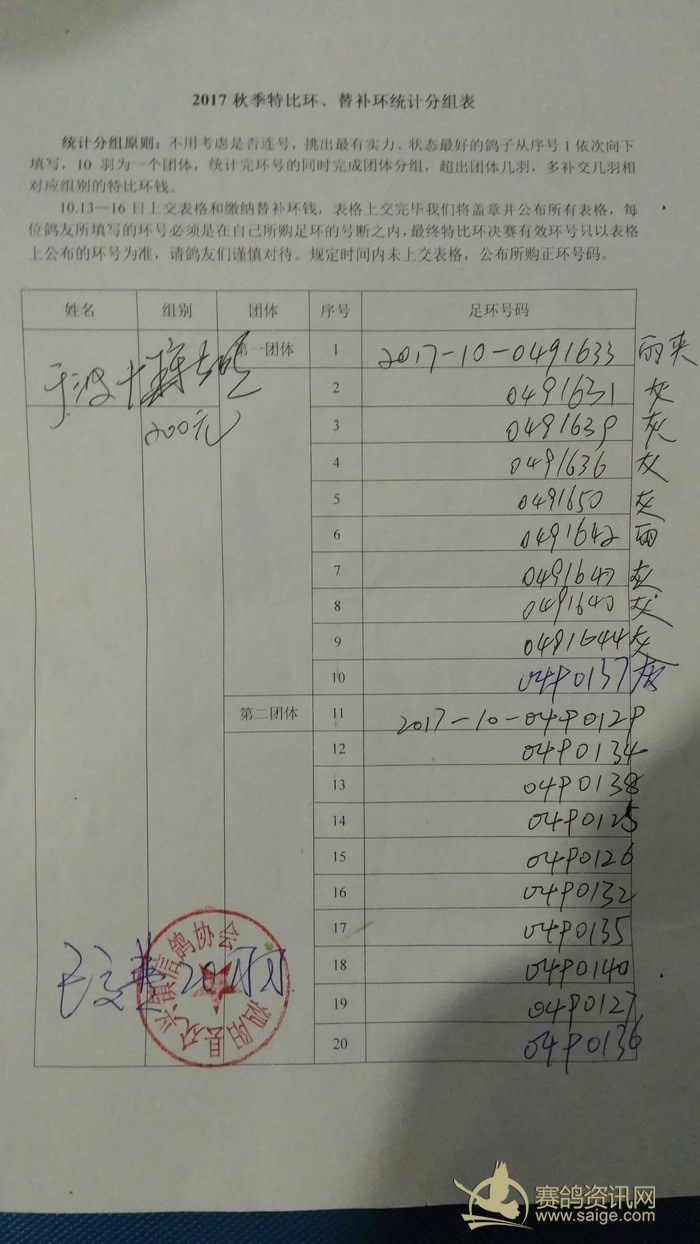 2017 秋季特比环、替补环统计分组表
统计分组原则：不用考虑是否连号，挑出最有实力、状态最好的鸽子从序号 1 依次向下
填写，10 羽为一个团体，统计完环号的同时完成团体分组，超出团体几羽，多补交几羽相
对应组别的特比环钱。
10.13—16 日上交表格和缴纳替补环钱，表格上交完毕我们将盖章并公布所有表格，每
位鸽友所填写的环号必须是在自己所购足环的号断之内，最终特比环决赛有效环号只以表格
上公布的环号为准，请鸽友们谨慎对待。规定时间内未上交表格，公布所购正环号码。
姓名 组别 团体 序号 足环号码
于波+ 第一团体 1 2017-10-0491633 雨夹
200元 2 0491631 灰
3 0491639 灰
4 0491636 灰
5 0491650 灰
6 0491642 雨
7 0491647 灰
8 0491640 灰
9 0491644 灰
10 0490137
第二团体 11 2017-10-0490129
12 0490134
13 0490138
14 0490125
15 0490126
16 0490132
17 0490135
18 0490140
19 0490127
20 0490136
已交 200
泗阳县众兴镇信鸽协会
赛鸽资讯网
www.saige.com